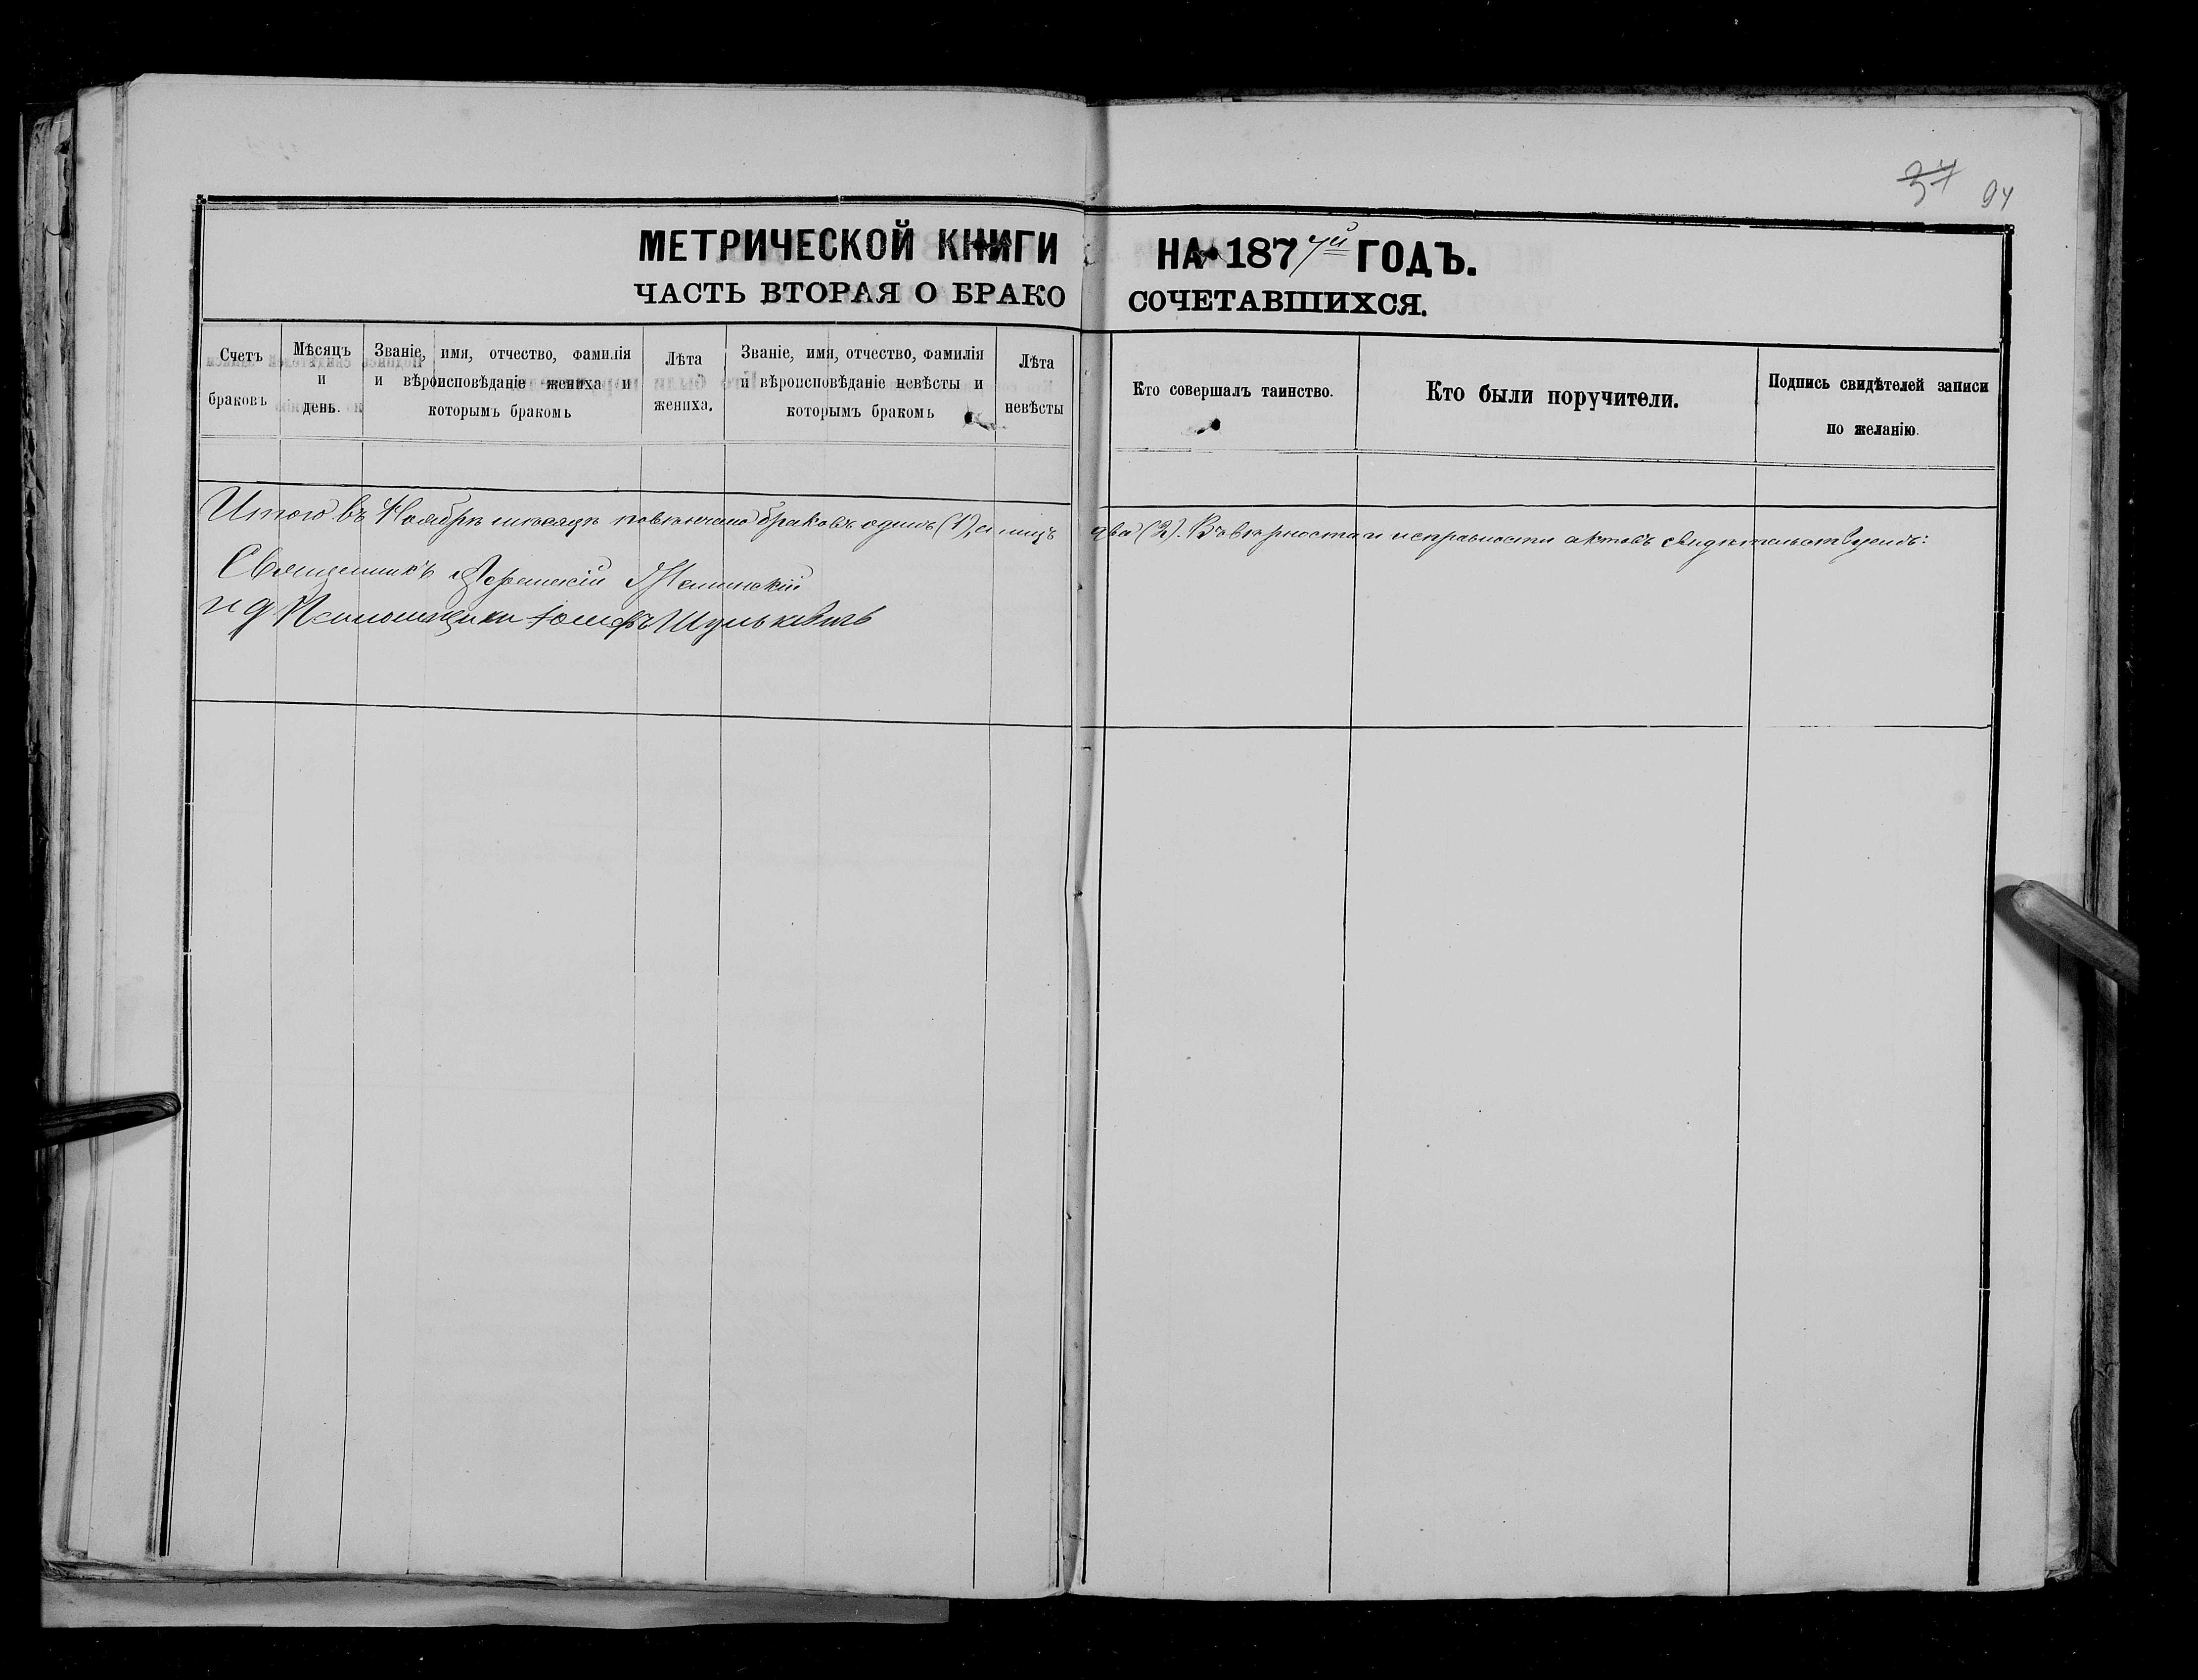 37 94
МЕТРИЧЕСКОЙ КНИГИ НА 1877й ГОДЪ.
ЧАСТЬ ВТОРАЯ О БРАКОСОЧЕТАВШИХСЯ.
Счетъ браковъ
Мѣсяцъ и день.
Званіе, имя, отчество, фамилія и вѣроисповѣданіе жениха и которымъ бракомъ
Лѣта жениха.
Званіе, имя, отчество, фамилія и вѣроисповѣданіе невѣсты и которымъ бракомъ
Лѣта невѣсты
Кто совершалъ таинство.
Кто были поручители.
Подпись свидѣтелей записи по желанію.
Итого въ Ноябрѣ мѣсяцѣ повѣнчано браковъ одинъ (1), а лицъ два (2). Въ вѣрности и исправности актовъ свидѣтельствуемъ:
Священникъ
и д Псаломщика Іосифъ Шулькевичъ